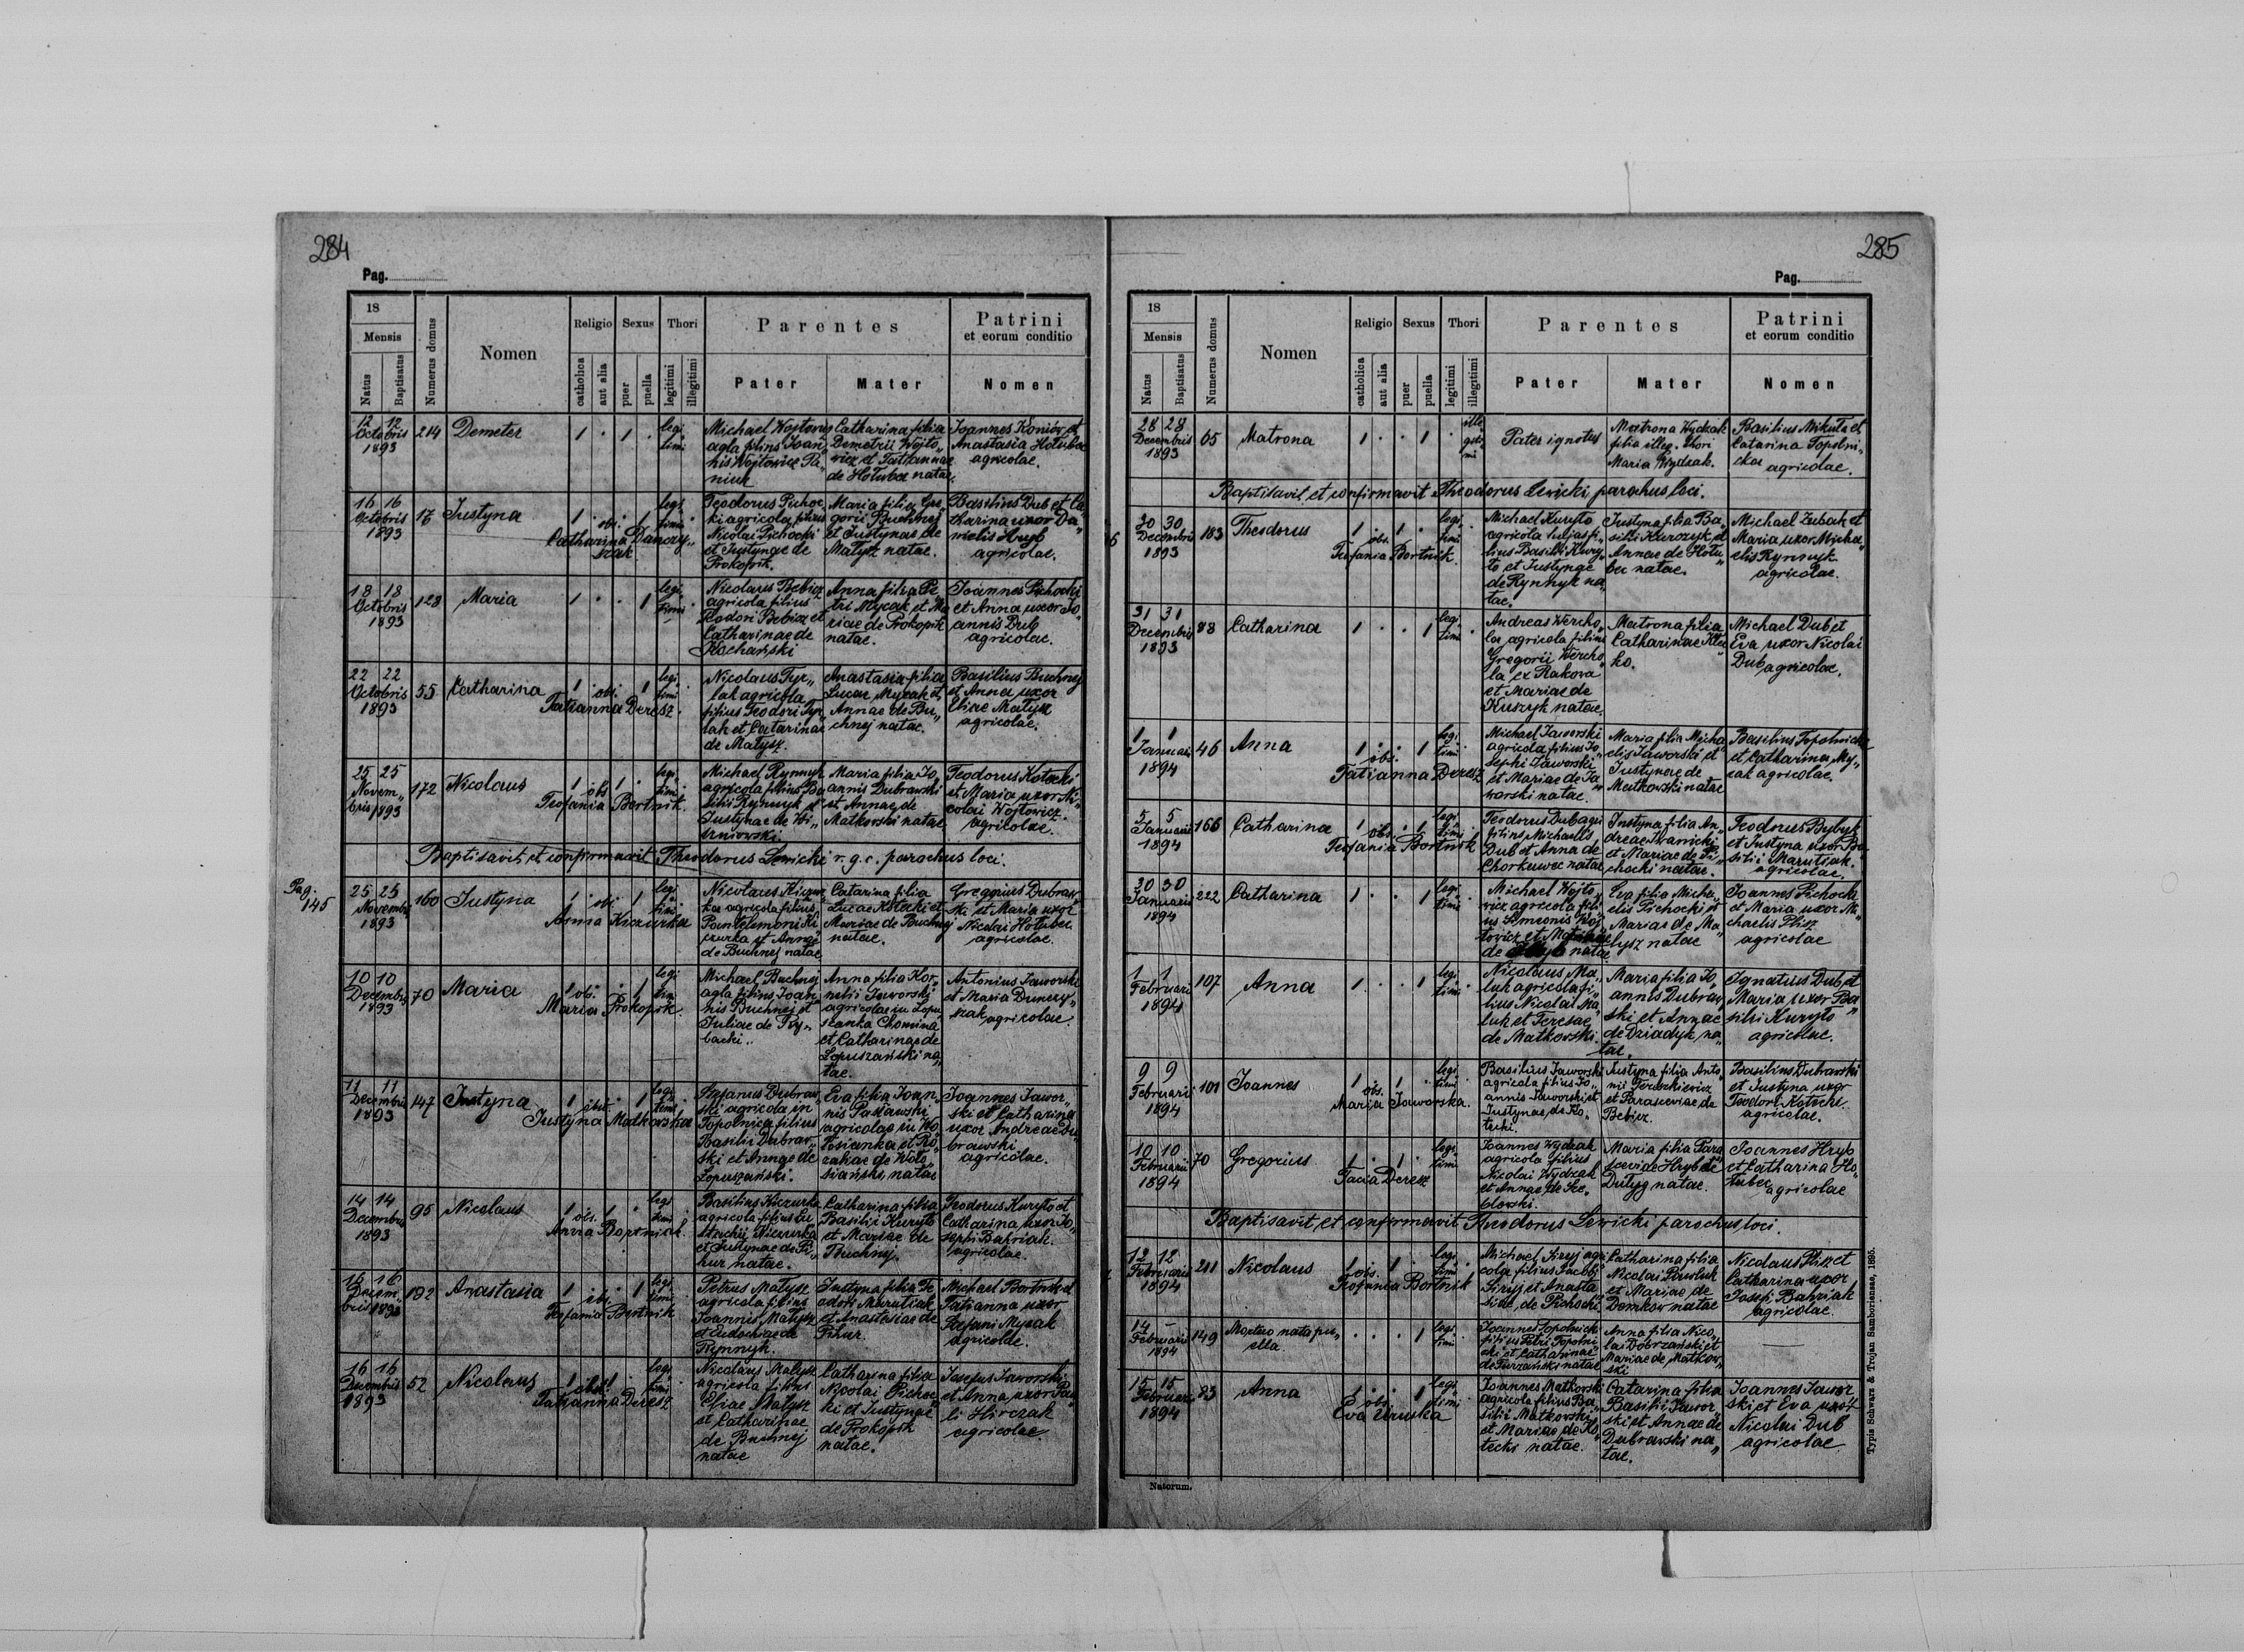 284
Pag.
18
Mensis
Natus
Baptisatus
Numerus domus
Nomen
Religio
catholica
aut alia
Sexus
puer
puella
Thori
legitimi
illegitimi
Parentes
Pater
Mater
Patrini
et eorum conditio
Nomen
12 12
Octobris
1893
214
Demeter
1 . 1 .
legi
timi
Michael Wojtowicz
agla filius Joan„
nis Wojtowicz Pa„
niuk
Catharina filia
Demetrii Wojto„
wicz et Tatiannae
de Hołuba natae.
Joannes Koniów et
Anastasia Hołuba
agricolae.
16 16
Octobris
1893
17
Justyna
1 . . 1
obs.
Catharina Danczy„
szak
legi
timi
Teodorus Pichoc
ki agricola filius
Nicolai Pichocki
et Justynae de
Prokopik.
Maria filia Gre„
gorii Buchnej
et Justynae de
Matysz natae.
Basilius Dub et Ca„
tharina uxor Da„
nielis Hryb
agricolae.
18 18
Octobris
1893
128
Maria
1 . . 1
legi
timi
Nicolaus Bebisz
agricola filius
Fedori Bebisz et
Catharinae de
Kochański
Anna filia Pe
tri Mycak et Ma
riae de Prokopik
natae.
Joannes Pichocki
et Anna uxor Jo„
annis Dub
agricolae.
22 22
Octobris
1893
55
Catharina
1 obs. 1
Tatianna Deresz.
legi
timi
Nicolaus Tur„
lak agricola
filius Teodori Tur
lak et Catarinae
de Matysz.
Anastasia filia
Lucae Mycak et
Annae de Bu„
chnej natae.
Basilius Buchnej
et Anna uxor
Eliae Matysz
agricolae.
25 25
Novem„
bris 1893
172
Nicolaus
1 obs. 1 .
Teofania Bortnik.
legi
timi
Michael Rynnyk
agricola filius Ba
silii Rynnyk et
Justynae de Wi„
szniowski
Maria filia Jo„
annis Dubrawski
et Annae de
Matkowski natae
Teodorus Kotecki
et Maria uxor Ni„
colai Wojtowicz.
agricolae.
Baptisavit et confirmavit Theodorus Lewicki r. g. c. parochus loci.
Pag.
145
25 25
Novembr
1893
160
Justyna
1 obs. . 1
Anna Kiczurka
legi
timi
Nicolaus Kiczur
ka agricola filius
Pantelemoni Ki
czurka et Annae
de Buchnej natae.
Catarina filia
Lucae Kotecki et
Mariae de Buchnej
natae.
Gregorius Dubraw
ski et Maria uxor
Nicolai Hołuber
agricolae.
10 10
Decembris
1893
70
Maria
1 obs. . 1
Maria Prokopik.
legi
tim
Michael Buchnej
agla filius Joan
nis Buchnej et
Juliae de Ry„
backi.
Anna filia Kor„
nelii Jaworski
agricolae in Łopu„
szanka Chomina
et Catharinae de
Łopuszański na„
tae.
Antonius Jaworski
et Maria Danczy„
szak agricolae
11 11
Decembris
1893
147
Justyna
1 obst. . 1
Justyna Matkowska
legi
timi
Stefanus Dubraw
ski agricola in
Topolnica filius
Basilii Dubraw„
ski et Annae de
Łopuszański.
Eva filia Joan
nis Pasławski
agricolae in Wo
łosianka et Ro„
zaliae de Woło„
siański natae
Joannes Jawor„
ski et Catharina
uxor Andreae Du„
brawski
agricolae.
14 14
Decembris
1893
95
Nicolaus
1 obs. 1 .
Anna Bortniak.
legi
timi
Basilius Kiczurka
agricola filius Eu„
stachii Kiczurka
et Justynae de Pi„
hur natae.
Catharina filia
Basilii Kuryło
et Mariae de
Buchnej
Teodorus Kuryło et
Catharina uxor Jo„
sephi Bahriak
agricolae.
16 16
Decem„
bris 1893
192
Anastasia
1 obs. . 1
Teofania Bortnik
legi
timi
Petrus Matysz
agricola filius
Joannis Matysz
et Eudochiae de
Rynnyk.
Justyna filia Te
odori Marutiak
et Anastasiae de
Pihur.
Michael Bortnik et
Tatianna uxor
Stefani Mycak
agricolae.
16 16
Decembris
1893
52
Nicolaus
1 obs. 1 .
Tatianna Deresz
legi
timi
Nicolaus Matysz
agricola filius
Eliae Matysz
et Catharinae
de Buchnej
natae
Catharina filia
Nicolai Pichoc
ki et Justynae
de Prokopik
natae.
Josefus Jaworski
et Anna uxor Pau„
li Hirczak
agricolae.
285
Pag.
18
Mensis
Natus
Baptisatus
Numerus domus
Nomen
Religio
catholica
aut alia
Sexus
puer
puella
Thori
legitimi
illegitimi
Parentes
Pater
Mater
Patrini
et eorum conditio
Nomen
28 28
Decembris
1893
65
Matrona
1 . . 1 .
ille
giti
mi
Pater ignotus
Matrona Wydzak
filia illeg. thori
Maria Wydzak.
Basilius Mikuła et
Catarina Topolni„
cka
agricolae.
Baptisavit et confirmavit Theodorus Lewicki parochus loci.
30 30
Decembris
1893
183
Theodorus
1 obs. 1 .
Tefania Bortnik.
legi
timi
Michael Kuryło
agricola fi„
lius Basilii Kury„
ło et Justynae
de Rynnyk na
tae.
Justyna filia Ba„
silii Kurczyk et
Annae de Hołu„
ber natae.
Michael Zubak et
Maria uxor Micha„
elis Rynnyk
agricolae.
31 31
Decembris
1893
88
Catharina
1 . . 1
legi
timi
Andreas Wercho„
la agricola filius
Gregorii Wercho„
la ex Rakova
et Mariae de
Kuszyk natae.
Matrona filia
Catharinae
ko.
Michael Dub et
Eva uxor Nicolai
Dub agricolae.
1 1
Januari
1894
46
Anna
1 obs. . 1
Tatianna Deresz
legi
timi
Michael Jaworski
agricola filius Jo„
sephi Jaworski
et Mariae de Ja„
worski natae.
Maria filia Micha
elis Jaworski et
Justynae de
Matkowski natae
Basilius Topolnicki
et Catharina My„
cak agricolae.
5 5
Januarii
1894
166
Catharina
1 obs. . 1
Teofania Bortnik
legi
timi
Teodorus Dub agri
filius Michaelis
Dub et Anna de
Chorkawec natae
Justyna filia An„
dreae Iwanicki
et Mariae de Pi„
chocki natae.
Teodorus Bybyk
et Justyna uxor Ba
silii Marutiak.
agricolae.
30 30
Januarii
1894
222
Catharina
1 . . 1
legi
timi
Michael Wojto„
wicz agricola fili„
us Simeonis Woj„
towicz et
de Hryb natae
Eva filia Micha„
elis Pichocki et
Mariae de Ma„
tysz natae
Joannes Pichocki
et Maria uxor Mi„
chaelis Plisz
agricolae
1 1
Februari
1894
107
Anna
1 . . 1
legi
timi
Nicolaus Ma„
luk agricola fi„
lius Nicolai Ma
luk et Teresae
de Matkowski.
Maria filia Jo„
annis Dubraw
ski et Annae
de Dziadyk na„
tae.
Ignatius Dub et
Maria uxor Ba„
silii Kuryło
agricolae.
9 9
Februari
1894
101
Joannes
1 obs. 1 .
Maria Jaworska.
legi
timi
Basilius Jaworski
agricola filius Jo„
annis Jaworski et
Justynae de Ko„
tecki.
Justyna filia Anto„
nii Teruszkiewicz
et Parasceviae de
Bebisz.
Basilius Dubrawski
et Justyna uxor
Teodori Kotecki.
agricolae.
10 10
Februarii
1894
70
Gregorius
1 . 1 .
Tacia Deresz
legi
timi
Joannes Wydzak
agricola filius
Nicolai Wydzak
et Annae de Sze„
błowski.
Maria filia Para
sceviae Hryb de
Dulyg natae.
Joannes Hryb
et Catharina Ho„
łuber agricolae
Baptisavit et confirmavit Theodorus Lewicki parochus loci.
12 12
Februarii
1894
211
Nicolaus
1 obs. 1 .
Teofania Bortnik
legi
timi
Michael Siryj agri
cola filius Jacobi
Siryj et Anasta
siae de Pichocki
Catharina filia
Nicolai Pawluk
et Mariae de
Domkow natae
Nicolaus Plisz et
Catharina uxor
Josefi Bahriak
agricolae
14 –
Februarii
1894
149
Mortuo nata pu„
ella
. . . 1
legi
timi
Joannes Topolnicki
filius Petri Topolni
cki et Catharinae
de Turzański natae
Anna filia Nico„
lai Dobrzański et
Mariae de Matkow„
ski
15 15
Februari
1894
83
Anna
1 obs. . 1
Eva Uruska
legi
timi
Joannes Matkowski
agricola filius Ba„
silii Matkowski
et Mariae de Ko„
tecki natae.
Catarina filia
Basilii Jawor„
ski et Annae de
Dubrawski na„
tae.
Joannes Jawor
ski et Eva uxor
Nicolai Dub
agricolae
Natorum.
Typis Schwarz & Trojan Samboriensae, 1895.